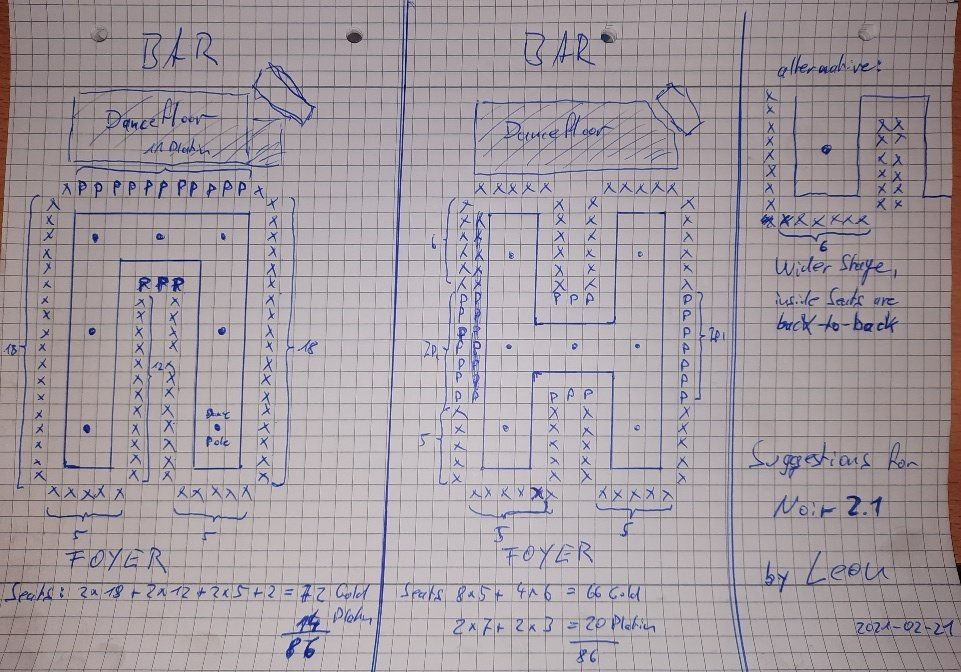 BAR
Dancefloor
11 Platin
R P P
18
12
18
Dance
Pole
5
5
FOYER
Seats: 2x18 + 2x12 + 2x5 + 2 = 72 Gold
14 Platin
86
BAR
Dancefloor
x x x x x
x x x x x
6
P P P
5
P P P
5
5
FOYER
Seats 8x5 + 4x6 = 66 Gold
2x7 + 2x3 = 20 Platin
86
alternative:
6
Wider Stage,
inside Seats are
back-to-back
Suggestions for
Noir 2.1
by Leon
2021-02-21